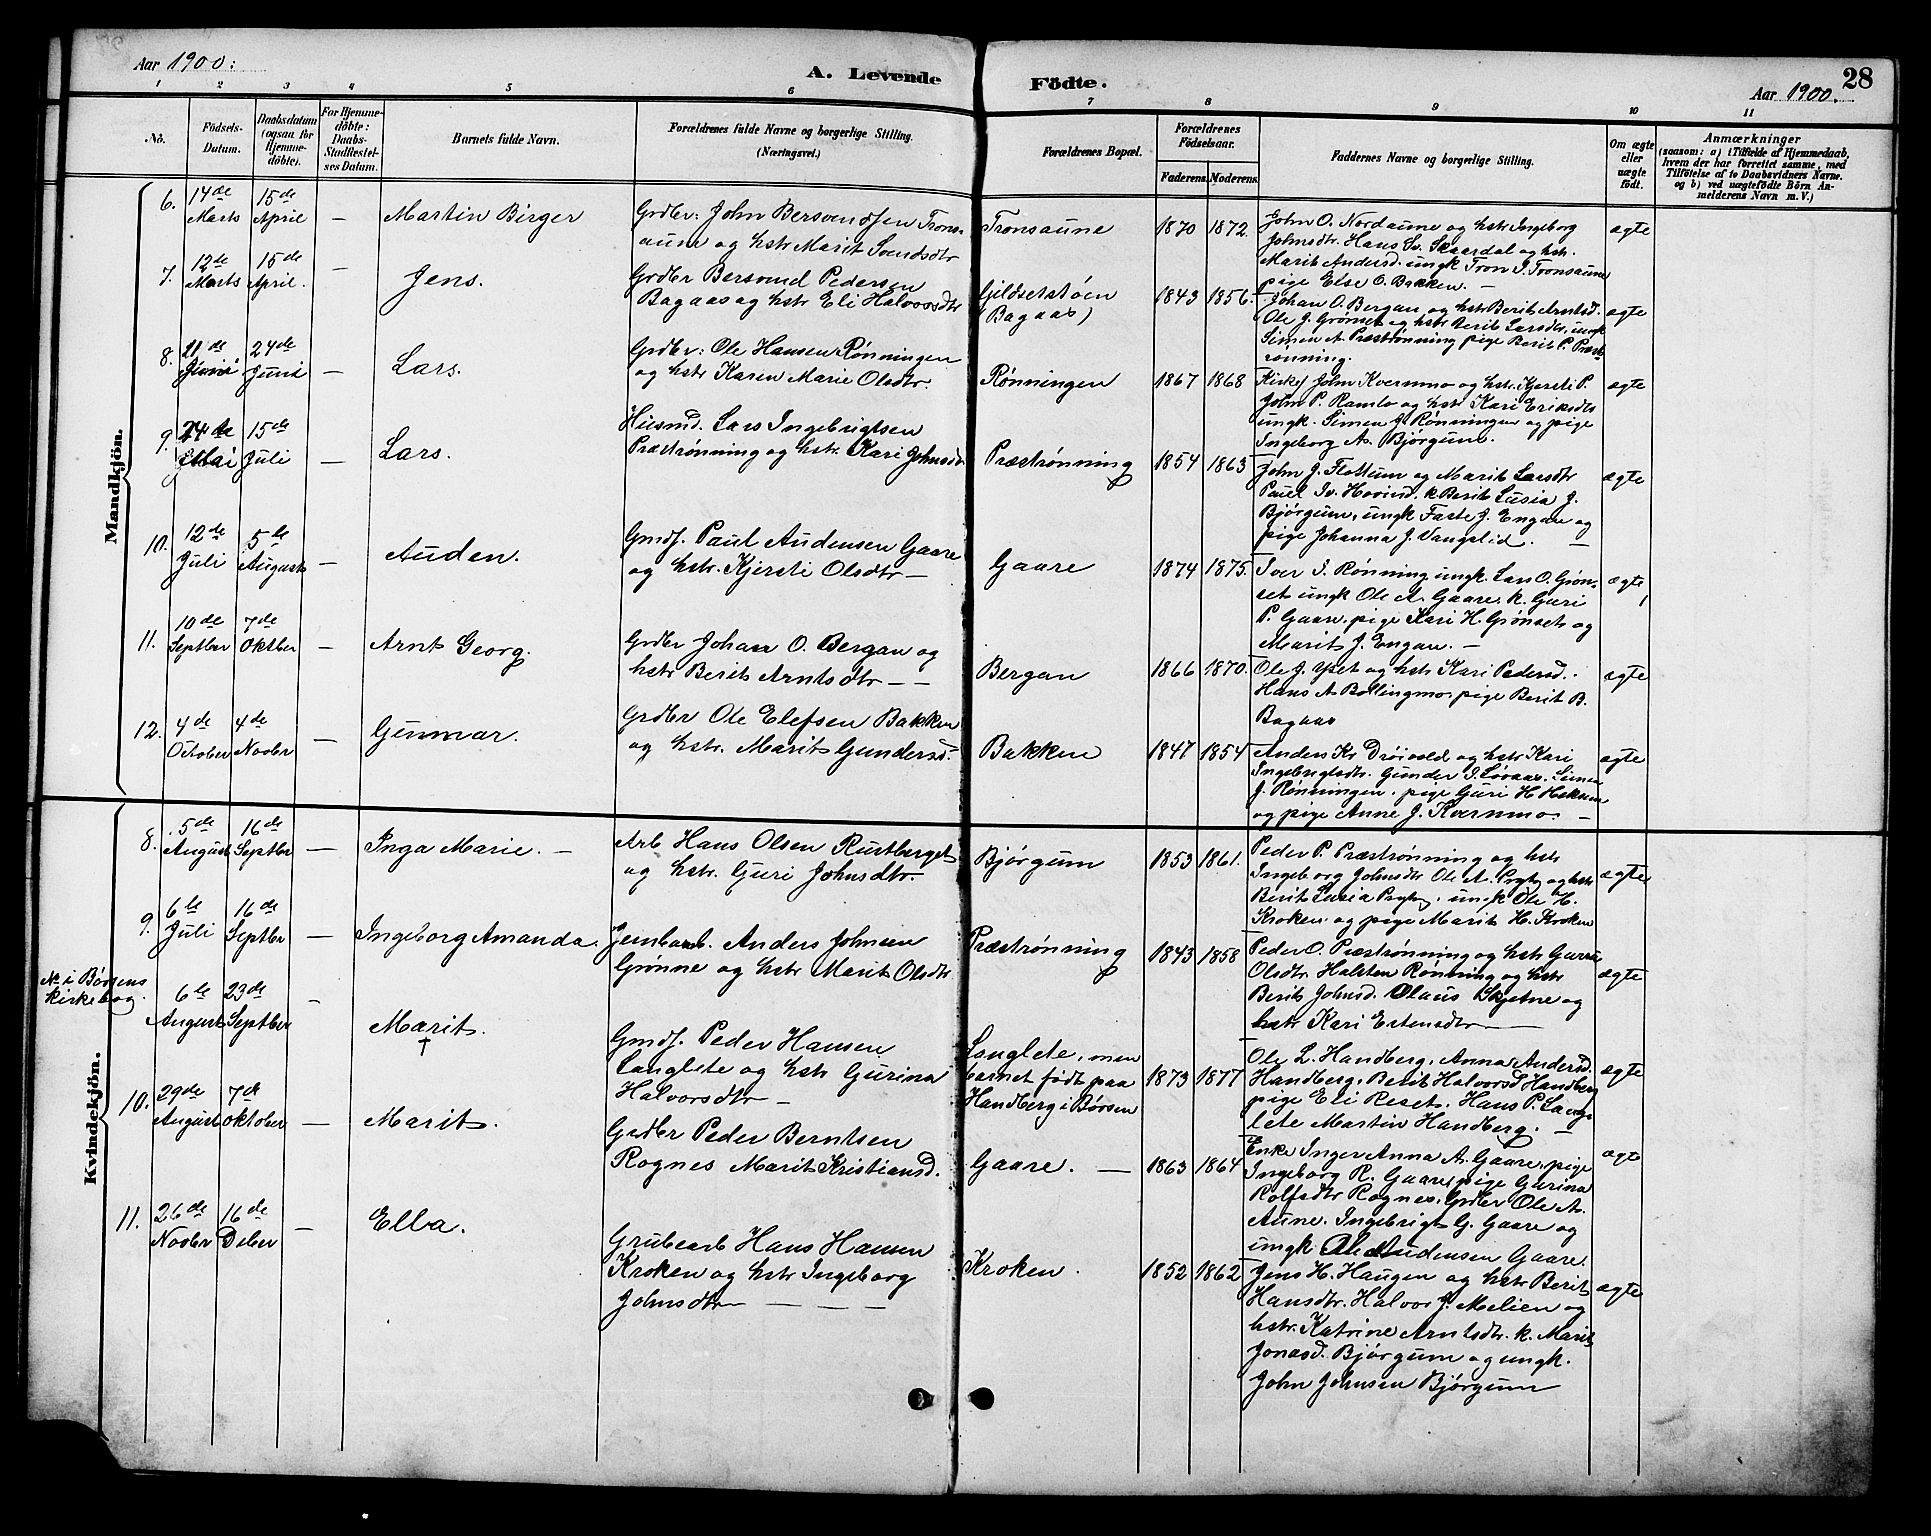 Aar 1900.
A. Levende
Födte.
Aar 1900.
28
1 2 3 4 5 6 7 8 9 10 11
No.
Födsels-
Datum.
Daabsdatum
(ogsaa for
Hjemme-
döbte).
For Hjemme-
döbte:
Daabs-
Stadfæstel-
ses Datum.
Barnets fulde Navn.
Forældrenes fulde Navne og borgerlige Stilling.
(Næringsvei.)
Forældrenes Bopæl.
Forældrenes
Födselsaar.
Faderens. Moderens.
Faddernes Navne og borgerlige Stilling.
Om ægte
eller
uægte
født.
Anmærkninger
(saasom: a) i Tilfælde af Hjemmedaab,
hvem der har forrettet samme, med
Tilföielse af to Daabsvidners Navne.
og b) ved uægtefödte Börn An-
melderens Navn m. V.)
Mandkjön.
6.
14de
Marts
15de
April
—
Martin Birger
Grdbr: John Bersvendsen Trons-
aune og hstr Marit Svendsdtr
Tronsaune
1870
1872.
John O. Nordaune og hstr Ingeborg
Johnsdtr. Hans Sv. Skaardal og hstr.
Marit Andersd. ungk Tron J. Tronsaune
pige Else O. Bakken. —
ægte
7.
12de
Marts
15de
April.
—
Jens.
Grdbr Bersvend Pedersen
Bagaas og hstr Eli Halvorsdtr
Gjeldsetstøen
(Bagaas)
1843
1856.
Johan O. Bergan og hstr Berit Arntsd.
Ole J. Grønset og hstr Berit Larsdtr, ungk
Simen A. Præstrønning pige Berit P. Præst-
rønning.
ægte
8.
21de
Juni
24de
Juni
—
Lars.
Grdbr: Ole Hansen Rønningen
og hstr Karen Marie Olsdtr.
Rønningen
1867
1868
Kirkes John Kvernmo og hstr. Kjersti P.
John P. Ramlo og hstr Kari Eriksdtr
ungk. Simen J. Rønningen og pige
Ingeborg A. Bjørgum.
ægte
9.
24de
Mai
15de
Juli
—
Lars.
Husmd. Lars Ingebrigtsen
Præstrønning og hstr. Kari Johnsd.
Præstrønning
1854
1863
John J. Flottum og Marit Larsdtr
Paul Iv. Hovind. k Berit Lusia J.
Bjørgum, ungk Faste J. Engan og
pige Johanna J. Vangslid. —
ægte
10.
12de
Juli
5te
August
—
Auden.
Gmdf. Paul Audensen Gaare
og hstr. Kjersti Olsdtr —
Gaare
1874
1875.
Iver I. Rønning ungk. Lars O. Grøn-
set ungk Ole A. Gaare. k. Guri
P. Gaare, pige Kari H. Grønset og
Marit J. Engan. —
ægte
11.
10de
Septber
7de
Oktber
—
Arnt Georg.
Grdbr Johan O. Bergan og
hstr Berit Arntsdtr — —
Bergan
1866
1870.
Ole J. Yset og hstr Kari Pedersd.
Hans A. Bollingmo, pige Berit B.
Bagaas
ægte
12.
4de
October
4de
Novbr
—
Gunmar.
Grdbr Ole Elefsen Bakken
og hstr. Marit Gundersd.
Bakken
1847
1854
Anders Kr Drøivold og hstr Kari
Ingebrigtsdtr. Gunder J. Løvaas. Simen
J. Rønningen. pige Guri H. Hokum
og pige Anne J. Kvernmo. —
ægte
Kvindekjön.
8.
5de
August
16de
Septbr
—
Inga Marie. —
Arb Hans Olsen Rustberget
og hstr. Guri Johnsdtr.
Bjørgum
1853
1861.
Peder P. Præstrønning og hstr
Ingeborg Johnsdtr Ole A. Prytz og hstr
Berit Lusia Prytz. ungk Ole H.
Kroken. og pige Marit H. Kroken
ægte
9.
6te
Juli
16de
Septbr
—
Ingeborg Amanda.
Jernbarb. Anders Johnsen
Grønne og hstr Marit Olsdtr
Præstrønning
1843
1858
Peder O. Præstrønning og hstr Gurina
Olsdtr. Halsten Rønning og hstr
Berit Johnsd. Olaus Skjetne og
hstr Kari Estensdtr —
ægte
No i Børsens
kirkebog.
6te
August
23de
Septber
—
Marit.
†
Gmdf. Peder Hansen
Langlete og hstr Gurina
Halvorsdtr —
Langlete, men
barnet født paa
Handberg i Børsen
1873
1877
Ole L. Handberg, Anna Andersd.
Handberg. Berit Halvorsd Handberg
pige Eli Reset. Hans P. Lang-
lete Martin Handberg. —
ægte
10.
29de
August
7de
Oktober
—
Marit.
Grdbr Peder Berntsen
Rognes Marit Kristiansd.
Gaare. —
1863
1864
Enke Inger Anna A. Gaare, pige
Ingeborg R. Gaare, pige Gurina
Rolfsdtr Rognes, Grdbr Ole A.
Aune. Ingebrigt G. Gaare og
ungk Ole Audensen Gaare.
ægte
11.
26de
Novbr
16de
Dcber
—
Ella.
Grubearb Hans Hansen
Kroken og hstr Ingeborg
Johnsdtr — — —
Kroken.
1852
1862
Jens H. Haugen og hstr Berit
Hansdtr. Halvor J. Melien og
hstr. Katrine Arntsdtr. k. Marit
Jonasd. Bjørgum og ungk.
John Johnsen Bjørgum
ægte